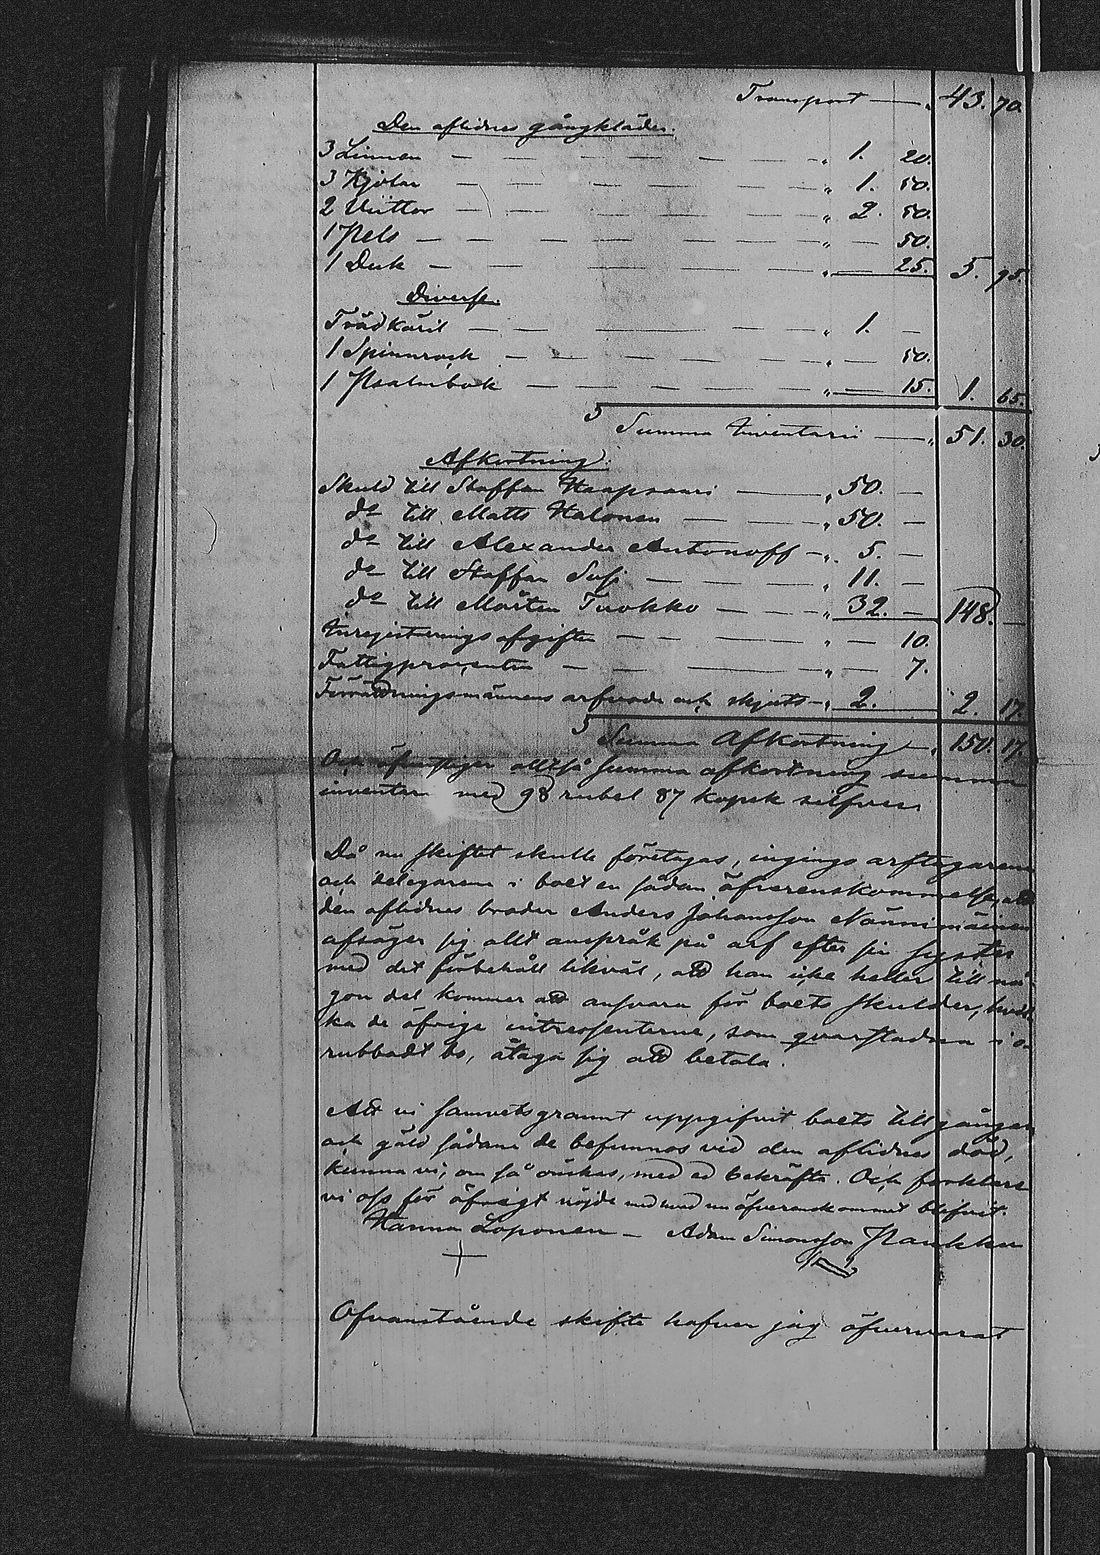 Transport — „ 43. 70.
Den aflidnes gångkläder.
3 Linnen — — — — — — „ 1. 20.
3 Kjolar — — — — — — „ 1. 50.
2 Vuittor — — — — — — „ 2. 50.
1 Pels — — — — — — „ — 50.
1 Duk — — — — — — „ — 25. 5. 95.
Diverse.
Trädkäril — — — — — — „ 1. —
1 Spinnrock — — — — — „ — 50.
1 Psalmbok — — — — — „ — 15. 1. 65.
Summa Inventarii — „ 51. 30.
Afkortning.
Skuld till Staffan Haapsaari — „ 50. —
do till Matts Halonen — — „ 50. —
do till Alexander Antonoff — „ 5. —
do till Staffan Susi — — „ 11. —
do till Mårten Tuokko — — „ 32. — 148. —
Inregistrerings afgiften — — — „ — 10.
Fattigprocenten — — — — „ — 7.
Förrättningsmännens arfvode och skjuts — „ 2. — 2. 17.
Summa Afkortning — „ 150. 17.
Och öfverstiger alltså summa afkortning summa
inventarii med 98 rubel 87 kopek silfver.
Då nu skiftet skulle företagas, ingingo arftagarena
och delegarena i boet en sådan öfverenskommelse, att
den aflidnes broder Anders Johansson Nännimäinen
afsäger sig allt anspråk på arf efter sin syster
med det förbehåll likväl, att han icke heller till nå-
gon del kommer att ansvara för boets skulder, hvil-
ka de öfrige intressenterne, som qvarstadna i o-
rubbadt bo, åtaga sig att betala.
Att vi samvetsgrannt uppgifvit boets tillgångar
och gäld sådane de befunnos vid den aflidnes död,
kunna vi, om så önskas, med ed bekräfta. Och förklara
vi oss för öfrigt nöjde med hvad nu öfverenskommit blifvit.
Hanna Loponen — Adam Simonsson Paukku
Ofvanstående skifte hafver jag öfvervarat